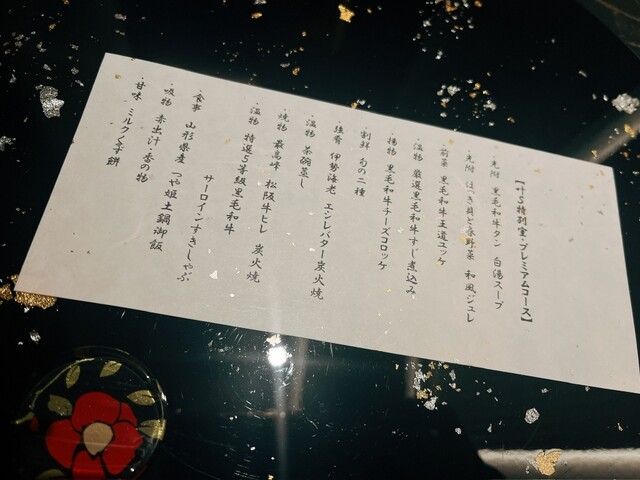 【叶S特別室・プレミアムコース】
・先附 黒毛和牛タン 白湯スープ
・先附 ほっき貝と春野菜 和風ジュレ
・前菜 黒毛和牛王道ユッケ
・温物 厳選黒毛和牛すじ煮込み
・揚物 黒毛和牛チーズコロッケ
・割鮮 旬の二種
・強肴 伊勢海老 エシレバター炭火焼
・温物 茶碗蒸し
・焼物 最高峰 松阪牛ヒレ 炭火焼
・温物 特選5等級黒毛和牛
サーロインすきしゃぶ
・食事 山形県産 つや姫土鍋御飯
・吸物 赤出汁・香の物
・甘味 ミルクくず餅